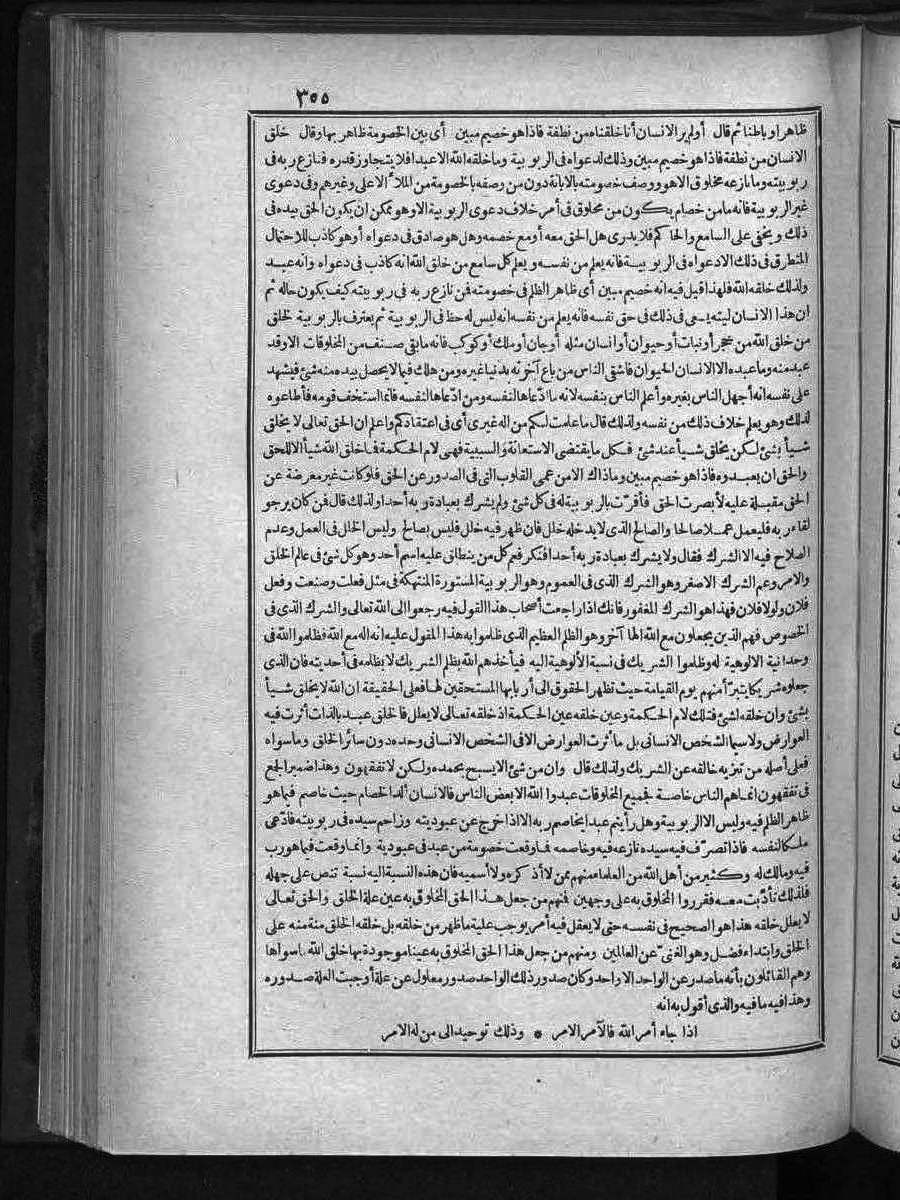 ٣٥٥
ظاهرا وباطنا ثم قال أولم ير الانسان أنا خلقناه من نطفة فاذا هو خصيم مبين أى بين الخصومة ظاهر بها وقال خلق
الانسان من نطفة فاذا هو خصيم مبين وذلك لدعواه فى الربوبية وما خلقه الله الا عبدا فلا يتجاوز قدره فنازع ربه فى
ربوبيته وما نازعه مخلوق الا هو ووصف خصومته بالابانة دون من وصفه بالخصومة من الملأ الاعلى وغيرهم وفى دعوى
غير الربوبية فانه ما من خصام يكون من مخلوق فى أمر خلاف دعوى الربوبية الا وهو ممكن ان يكون الحق بيده فى
ذلك ويخفى على السامع والحاكم فلا يدرى هل الحق معه أو مع خصمه وهل هو صادق فى دعواه أو هو كاذب للاحتمال
المتطرق فى ذلك الا دعواه فى الربوبية فانه يعلم من نفسه ويعلم كل سامع من خلق الله انه كاذب فى دعواه وانه عبد
ولذلك خلقه الله فلهذا قيل فيه انه خصيم مبين أى ظاهر الظلم فى خصومته فمن نازع ربه فى ربوبيته كيف يكون حاله ثم
ان هذا الانسان ليته يسعى فى ذلك فى حق نفسه فانه يعلم من نفسه انه ليس له حظ فى الربوبية ثم يعترف بالربوبية لخلق
من خلق الله من حجر أو نبات أو حيوان أو انسان مثله أو جان أو ملك أو كوكب فانه ما بقى صنف من المخلوقات الا وقد
عبد منه وما عبده الا الانسان الحيوان فاشقى الناس من باع آخرته بدنيا غيره ومن هلك فيما لا يحصل بيده منه شئ فيشهد
على نفسه انه أجهل الناس بغيره وأعلم الناس بنفسه لانه ما ادّعاها لنفسه ومن ادّعاها لنفسه فانما استخف قومه فأطاعوه
لذلك وهو يعلم خلاف ذلك من نفسه ولذلك قال ما علمت لكم من اله غيرى أى فى اعتقادكم واعلم ان الحق تعالى لا يخلق
شيأ بشئ لكن يخلق شيأ عند شئ فكل ما يقتضى الاستعانة والسببية فهى لام الحكمة فما خلق الله شيأ الا للحق
والحق ان يعبدوه فاذا هو خصيم مبين وما ذاك الا من عمى القلوب التى فى الصدور عن الحق فلو كانت غير معرضة عن
الحق مقبلة عليه لأبصرت الحق فأقرّت بالربوبية له فى كل شئ ولم يشرك بعبادة ربه أحدا ولذلك قال فمن كان يرجو
لقاء ربه فليعمل عملا صالحا والصالح الذى لا يدخله خلل فان ظهر فيه خلل فليس بصالح وليس الخلل فى العمل وعدم
الصلاح فيه الا الشرك فقال ولا يشرك بعبادة ربه أحدا فنكر فعم كل من ينطلق عليه اسم أحد وهو كل شئ فى عالم الخلق
والامر وعم الشرك الاصغر وهو الشرك الذى فى العموم وهو الربوبية المستورة المنتهكة فى مثل فعلت وصنعت وفعل
فلان ولولا فلان فهذا هو الشرك المغفور فانك اذا راجعت أصحاب هذا القول فيه رجعوا الى الله تعالى والشرك الذى فى
الخصوص فهم الذين يجعلون مع الله الها آخر وهو الظلم العظيم الذى ظلموا به هذا المقول عليه انه اله مع الله فظلموا الله فى
وحدانية الالوهية له وظلموا الشريك فى نسبة الألوهية اليه فيأخذهم الله بظلم الشريك لا بظلمه فى أحديته فان الذى
جعلوه شريكا يتبرّأ منهم يوم القيامة حيث تظهر الحقوق الى أربابها المستحقين لها فعلى الحقيقة ان الله لا يخلق شيأ
بشئ وان خلقه لشئ فتلك لام الحكمة وعين خلقه عين الحكمة اذ خلقه تعالى لا يعلل فالخلق عبد بالذات أثرت فيه
العوارض ولا سيما الشخص الانسانى بل ما أثرت العوارض الا فى الشخص الانسانى وحده دون سائر الخلق وما سواه
فعلى أصله من تنزيه خالقه عن الشريك ولذلك قال وان من شئ الا يسبح بحمده ولكن لا تفقهون وهذا ضمير الجمع
فى تفقهون انما هم الناس خاصة فجميع المخلوقات عبدوا الله الا بعض الناس فالانسان ألد الخصام حيث خاصم فيما هو
ظاهر الظلم فيه وليس الا الربوبية وهل رأيتم عبدا يخاصم ربه الا اذا خرج عن عبوديته وزاحم سيده فى ربوبيته فادّعى
ملكا لنفسه فاذا تصرّف فيه سيده نازعه فيه وخاصمه فما وقعت خصومة من عبد فى عبودية وانما وقعت فيما هو رب
فيه ومالك له وكثير من أهل الله من العلماء منهم ممن لا أذكره ولا أسميه فان هذه النسبة اليه نسبة تنص على جهله
فلذلك تأدّبت معه فقرروا المخلوق به على وجهين فمنهم من جعل هذا الحق المخلوق به عين علة الخلق والحق تعالى
لا يعلل خلقه هذا هو الصحيح فى نفسه حتى لا يعقل فيه أمر يوجب علية ما ظهر من خلقه بل خلقه الخلق منة منه على
الخلق وابتداء فضل وهو الغنىّ عن العالمين ومنهم من جعل هذا الحق المخلوق به عينا موجودة بها خلق الله ما سواها
وهم القائلون بأنه ما صدر عن الواحد الا واحد وكان صدور ذلك الواحد صدور معلول عن علة أوجبت العلة صدوره
وهذا فيه ما فيه والذى أقول به انه
اذا جاء أمر الله فالآمر الامر * وذلك توحيد الى من له الامر